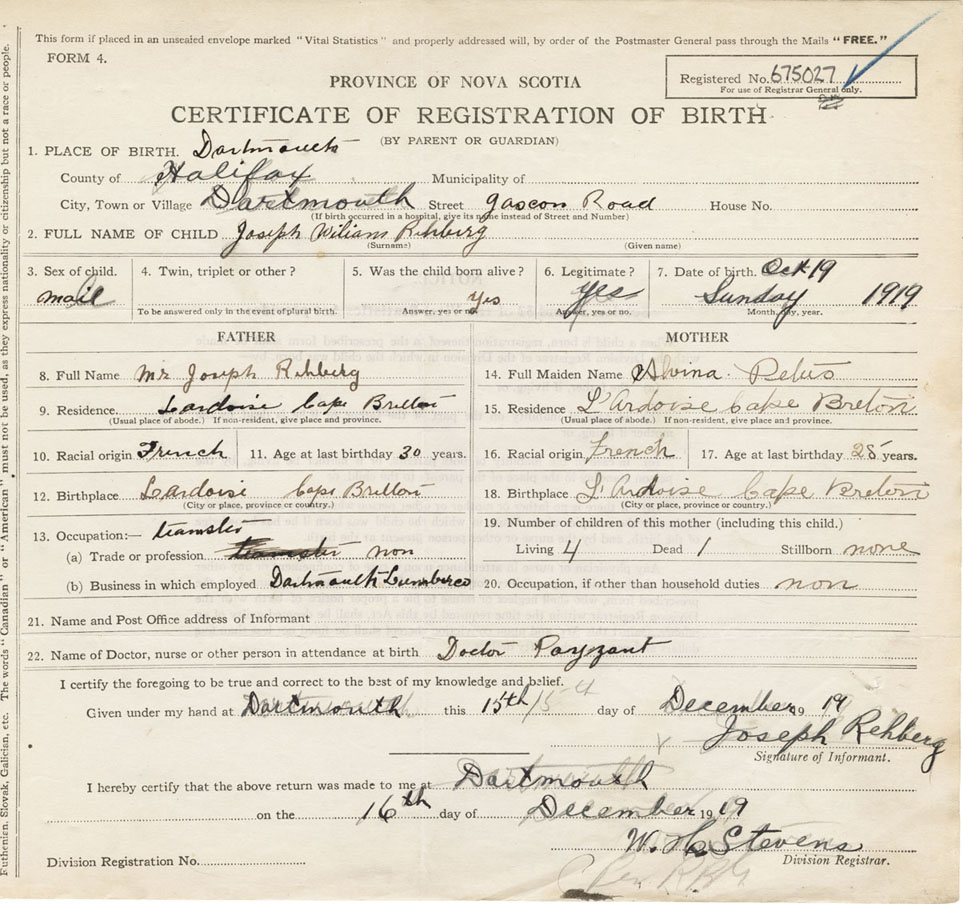 This form if placed in an unsealed envelope marked "Vital Statistics" and properly addressed will, by order of the Postmaster General pass through the Mails "FREE."
FORM 4.
Registered No. 675027
For use of Registrar General only.
PROVINCE OF NOVA SCOTIA
CERTIFICATE OF REGISTRATION OF BIRTH
(BY PARENT OR GUARDIAN)
1. PLACE OF BIRTH. Dartmouth
County of Halifax Municipality of
City, Town or Village Dartmouth Street gascon Road House No.
(If birth occurred in a hospital, give its name instead of Street and Number)
2. FULL NAME OF CHILD Joseph Wiliam Rehberg
(Surname) (Given name)
3. Sex of child. 4. Twin, triplet or other? 5. Was the child born alive? 6. Legitimate? 7. Date of birth. Oct 19
mail Yes yes Sunday 1919
To be answered only in the event of plural birth. Answer, yes or no. Answer, yes or no. Month, day, year.
FATHER MOTHER
8. Full Name Mr Joseph Rehberg 14. Full Maiden Name Alvina
9. Residence. Lardoise Cape Bretton 15. Residence L'Ardoise Cape Breton
(Usual place of abode.) If non-resident, give place and province. (Usual place of abode.) If non-resident, give place and province.
10. Racial origin French 11. Age at last birthday 30 years. 16. Racial origin French 17. Age at last birthday 28 years.
12. Birthplace Lardoise Cape Bretton 18. Birthplace L'Ardoise Cape Breton
(City or place, province or country.) (City or place, province or country.)
13. Occupation:— teamster 19. Number of children of this mother (including this child.)
(a) Trade or profession teamster non Living 4 Dead 1 Stillborn none
(b) Business in which employed Dartmouth Lumber co 20. Occupation, if other than household duties non
21. Name and Post Office address of Informant
22. Name of Doctor, nurse or other person in attendance at birth Doctor Payzant
I certify the foregoing to be true and correct to the best of my knowledge and belief.
Given under my hand at Dartmouth this 15th day of December 19 19
Joseph Rehberg
Signature of Informant.
I hereby certify that the above return was made to me at Dartmouth
on the 16th day of December 19 19
W. H. Stevens
Division Registrar.
Division Registration No.
Ruthenian, Slovak, Galician, etc. The words "Canadian" or "American" must not be used, as they express nationality or citizenship but not a race or people.